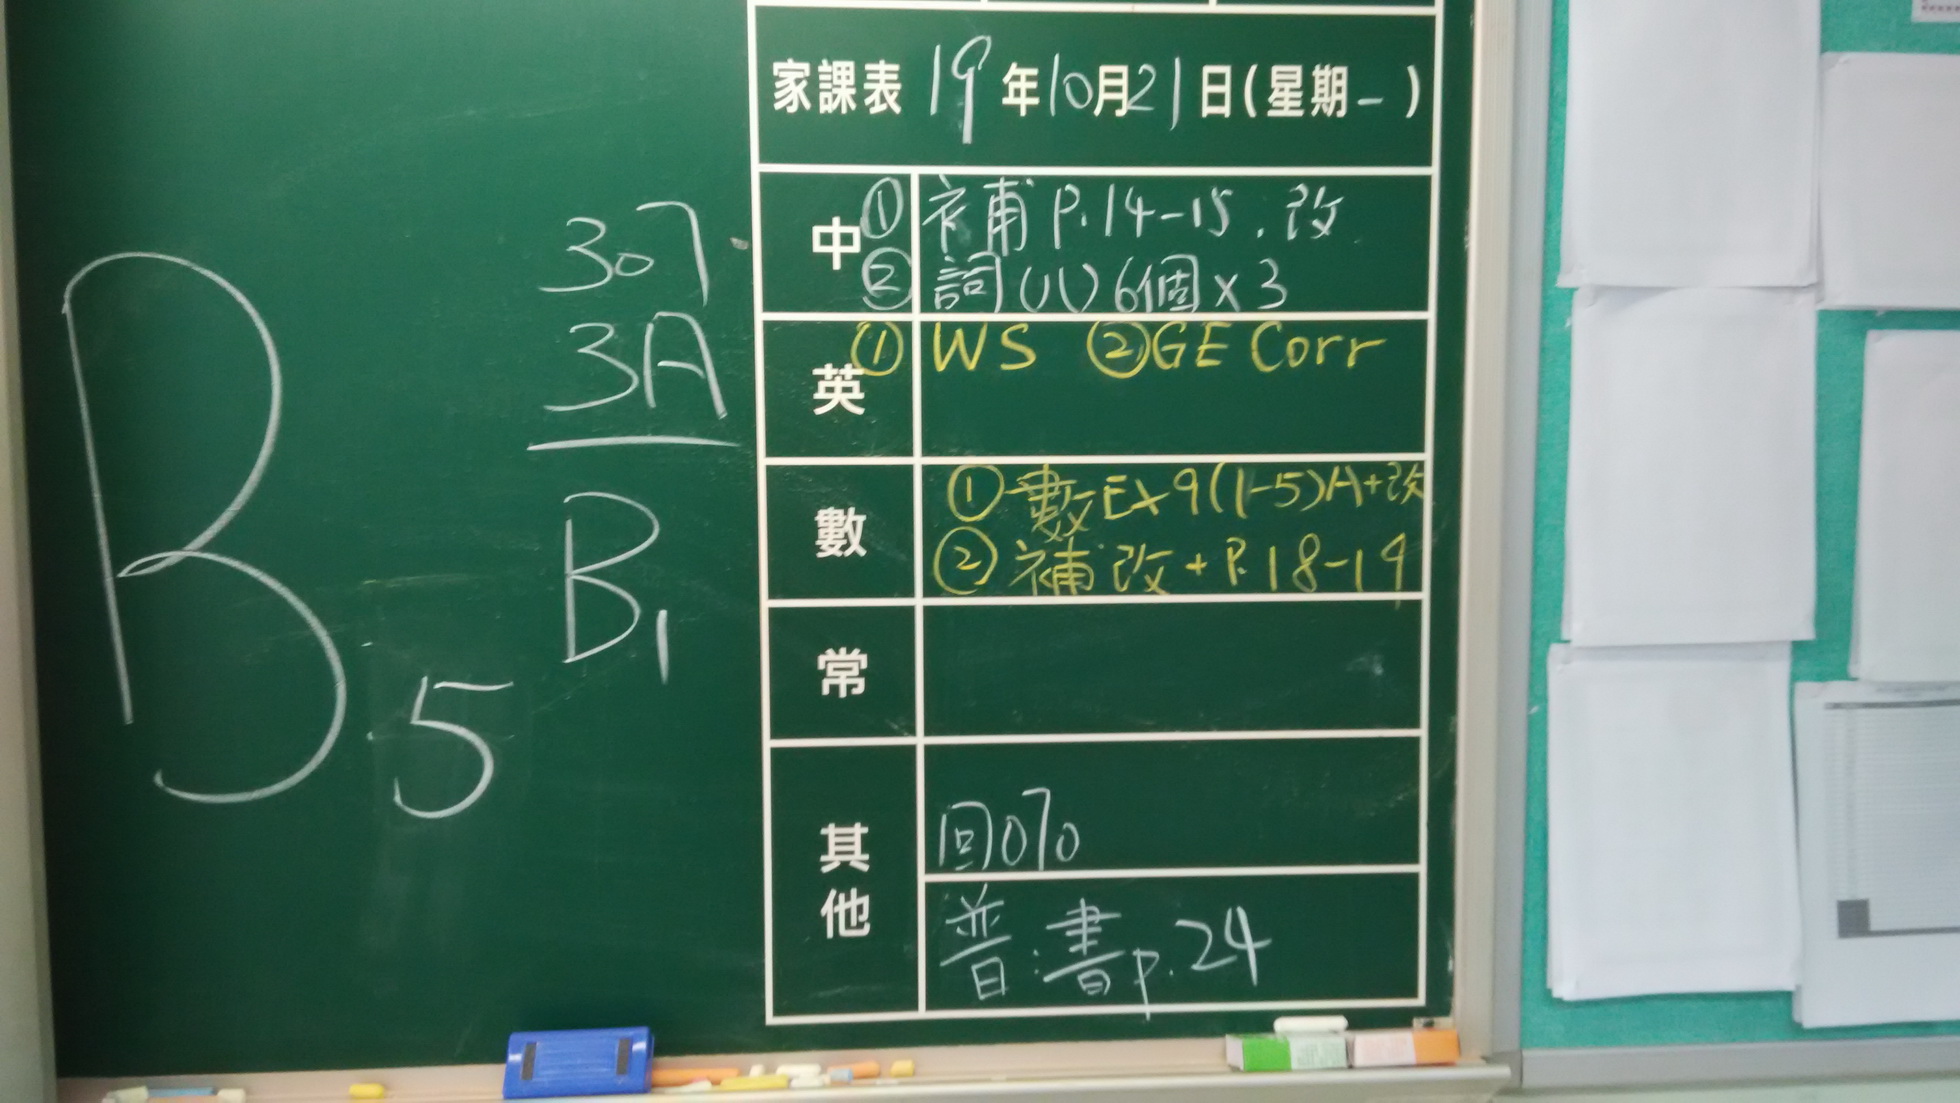 家課表 19年10月21日(星期一)
中 ① 補 P.14-15. 改
② 詞(八)6個x3
英 ① WS ② GE Corr
數 ① 數 Ex 9(1-5)A+改
② 補 改 + P.18-19
常
其他 回070
普:書p.24
307
3A
B1
B5